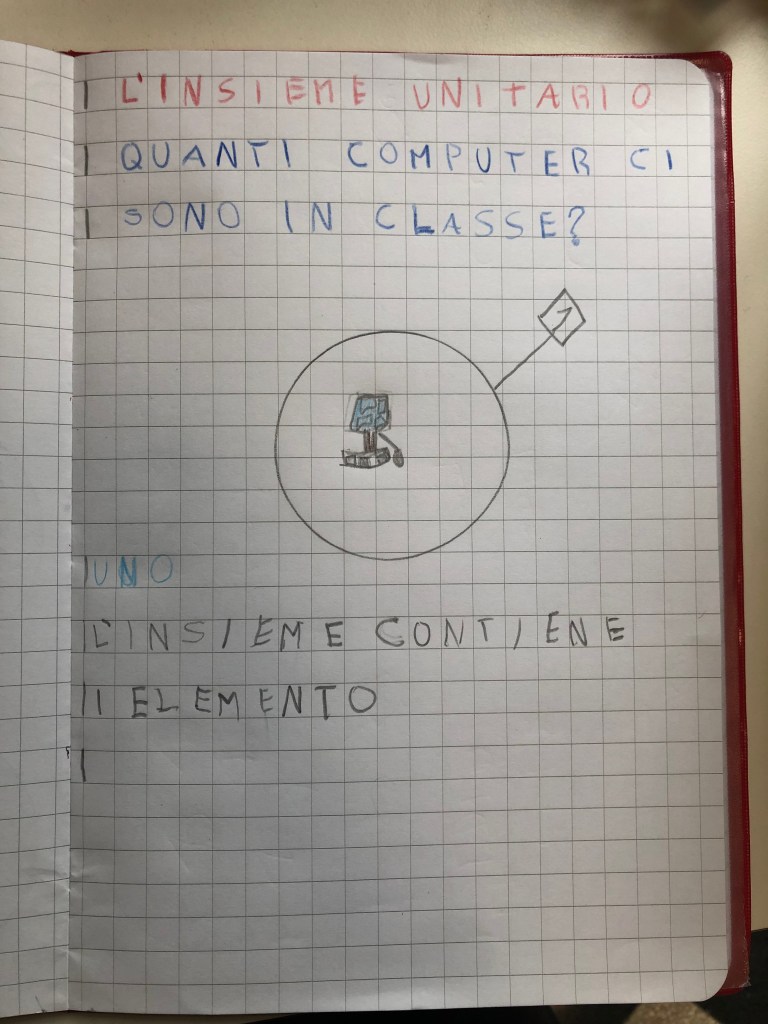 L'INSIEME UNITARIO
QUANTI COMPUTER CI
SONO IN CLASSE?
1
UNO
L'INSIEME CONTIENE
1 ELEMENTO